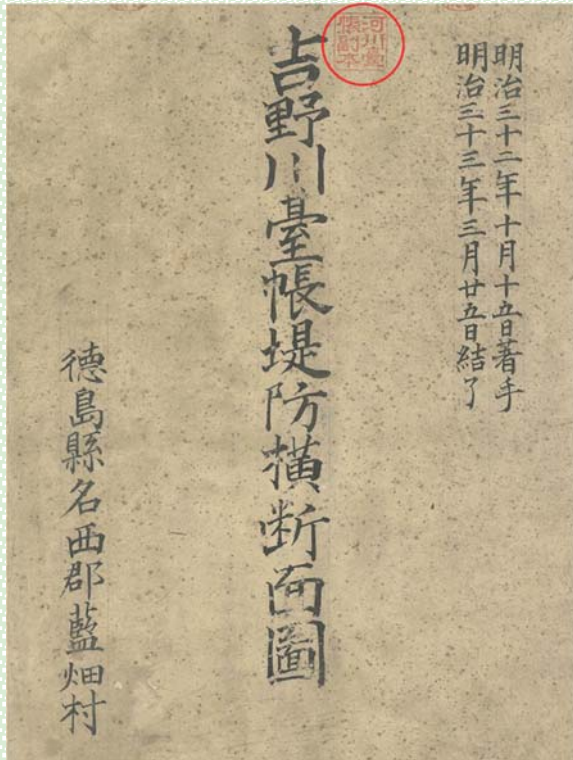 明治三十二年十月十五日著手
明治三十三年三月廿五日結了
河川臺
帳副本
吉野川臺帳堤防横断面圖
徳島縣名西郡藍畑村